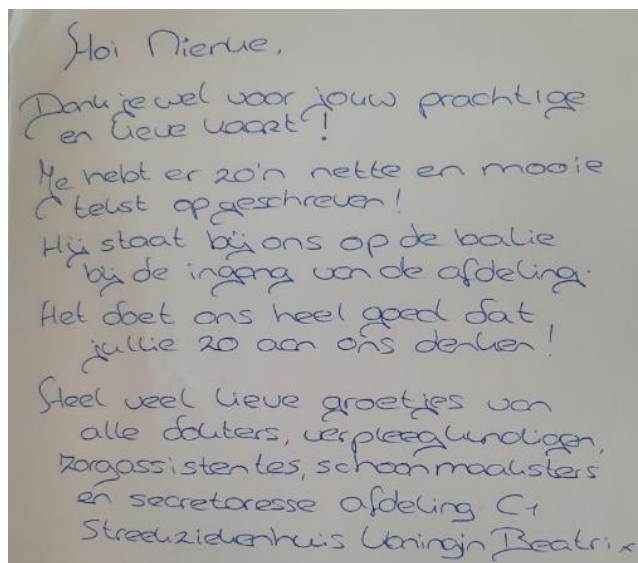 Hoi Nienke,
Dank je wel voor jouw prachtige
en lieve kaart!
Je hebt er zo'n nette en mooie
tekst opgeschreven!
Hij staat bij ons op de balie
bij de ingang van de afdeling.
Het doet ons heel goed dat
jullie zo aan ons denken!
Heel veel lieve groetjes van
alle dokters, verpleegkundigen,
zorgassistentes, schoonmaaksters
en secretaresse afdeling C1
Streekziekenhuis Koningin Beatrix